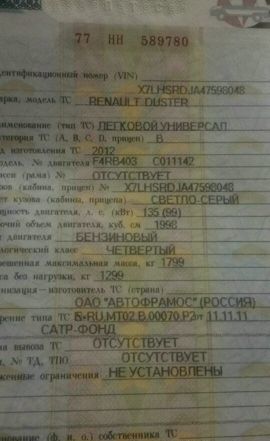 77 НН 589780
дентификационный номер (VIN)
X7LHSRDJA47598048
арка, модель ТС RENAULT DUSTER
именование (тип ТС) ЛЕГКОВОЙ УНИВЕРСАЛ
атегория ТС (A, B, C, D, прицеп) B
д изготовления ТС 2012
одель, № двигателя F4RB403 C011142
асси (рама) № ОТСУТСТВУЕТ
узов (кабина, прицеп) № X7LHSRDJA47598048
ет кузова (кабины, прицепа) СВЕТЛО-СЕРЫЙ
щность двигателя, л. с. (кВт) 135 (99)
очий объем двигателя, куб. см 1998
двигателя БЕНЗИНОВЫЙ
ологический класс ЧЕТВЕРТЫЙ
решенная максимальная масса, кг 1799
са без нагрузки, кг 1299
низация—изготовитель ТС (страна)
ОАО "АВТОФРАМОС" (РОССИЯ)
рение типа ТС E-RU.MT02.B.00070.P2 от 11.11.11
САТР-ФОНД
на вывоза ТС ОТСУТСТВУЕТ
, № ТД, ТПО ОТСУТСТВУЕТ
женные ограничения НЕ УСТАНОВЛЕНЫ
нование (ф. и. о.) собственника ТС